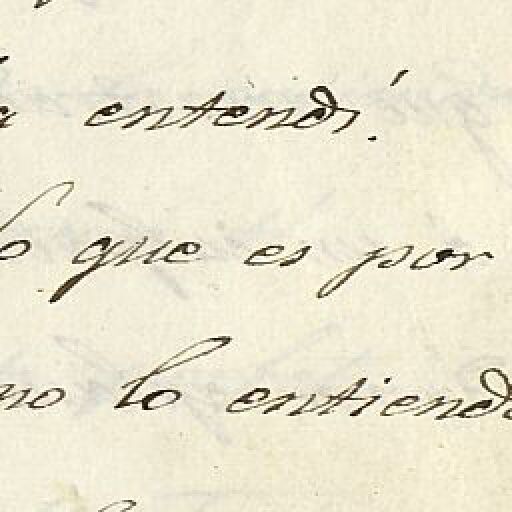 entendí.
lo que es por
no lo entiend